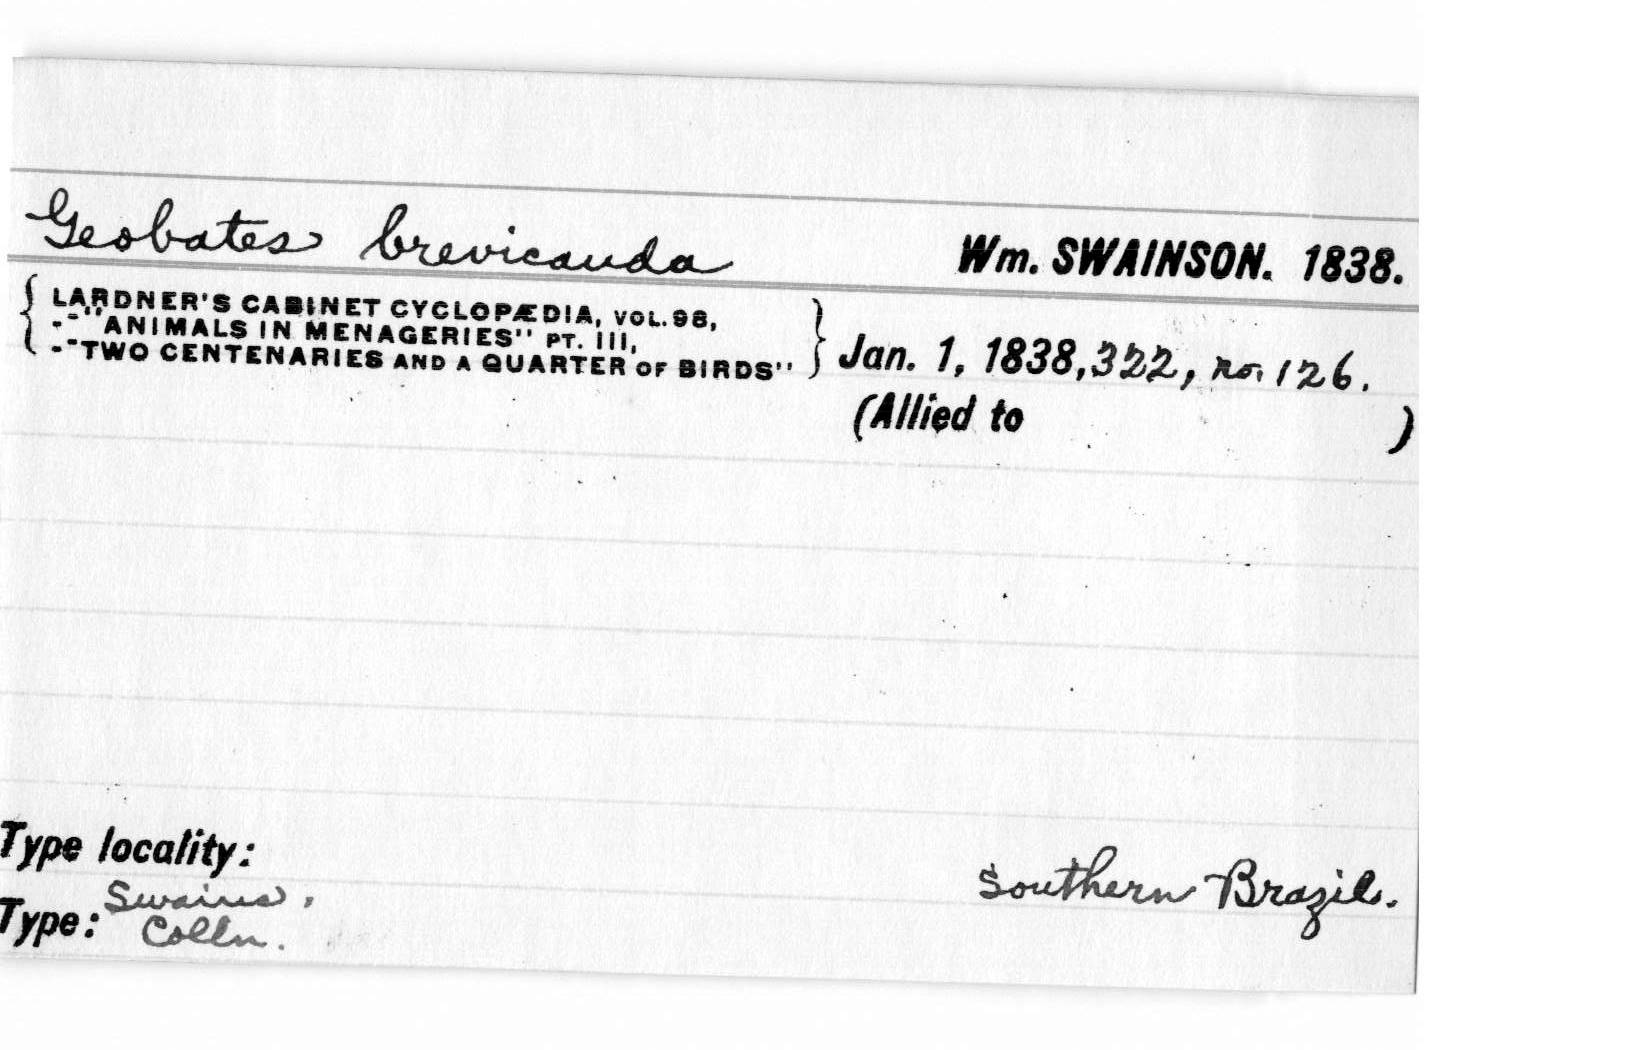 Geobates brevicauda Wm. SWAINSON. 1838.
LARDNER'S CABINET CYCLOPÆDIA, VOL. 98,
--"ANIMALS IN MENAGERIES" PT. III,
--"TWO CENTENARIES AND A QUARTER OF BIRDS" Jan. 1, 1838, 322, no. 126.
(Allied to )
Type locality:
Southern Brazil.
Swains.
Type: Colln.